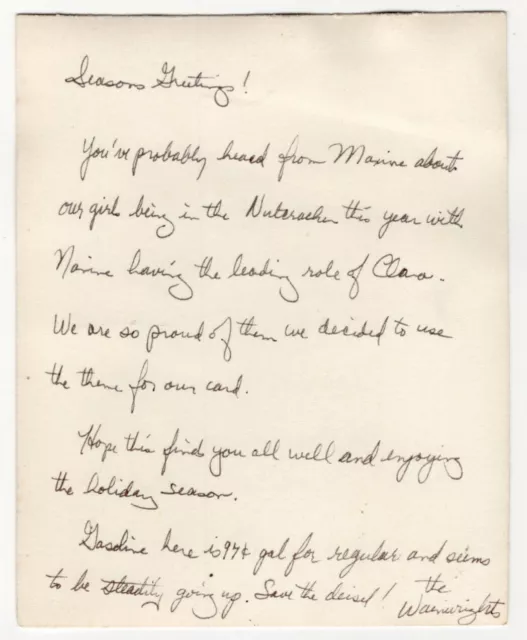 Seasons Greetings!
You've probably heard from Maxine about
our girls being in the Nutcracker this year with
Maxine having the leading role of Clara.
We are so proud of them we decided to use
the theme for our card.
Hope this finds you all well and enjoying
the holiday season.
Gasoline here is 97¢ gal for regular and seems
to be steadily going up. Save the deisel! the
Wainwrights